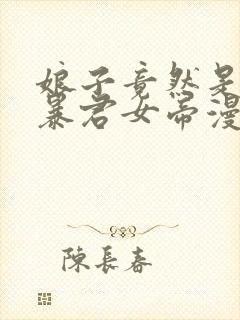 娘子竟然是
暴君女帝漫
陳長春